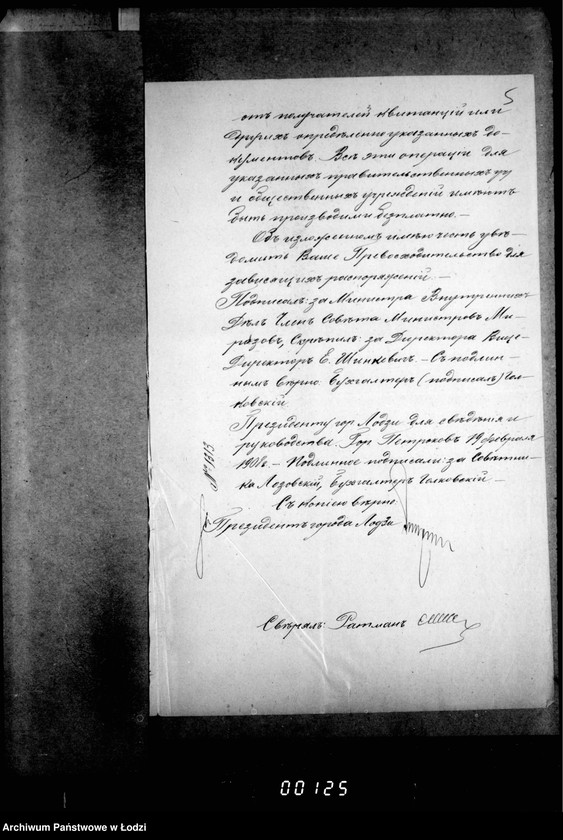 5
отъ получателей квитанцій или
другихъ опредѣленно указанныхъ до-
кументовъ. Всѣ эти операціи для
указанныхъ правительственныхъ
и общественныхъ учрежденій имѣютъ
быть производимы безплатно. —
Объ изложенномъ имѣю честь увѣ-
домить Ваше Превосходительство для
зависящихъ распоряженій. —
Подписалъ: за Министра Внутреннихъ
Дѣлъ Членъ Совѣта Министровъ
Скрѣпилъ: за Директора Вице-
Директоръ Е. Шинкевичъ. — Съ подлин-
нымъ вѣрно: Бухгалтеръ (подписалъ) Гол-
ковскій
Президенту гор. Лодзи для свѣдѣнія и
руководства. Гор. Петроковъ 19 февраля
1901 г. — Подлинное подписали: за Совѣтни-
ка Лозовскій, Бухгалтеръ Голковскій —
Съ копіею вѣрно
Президентъ города Лодзи
Свѣрялъ: Ратманъ
00125
Archiwum Państwowe w Łodzi